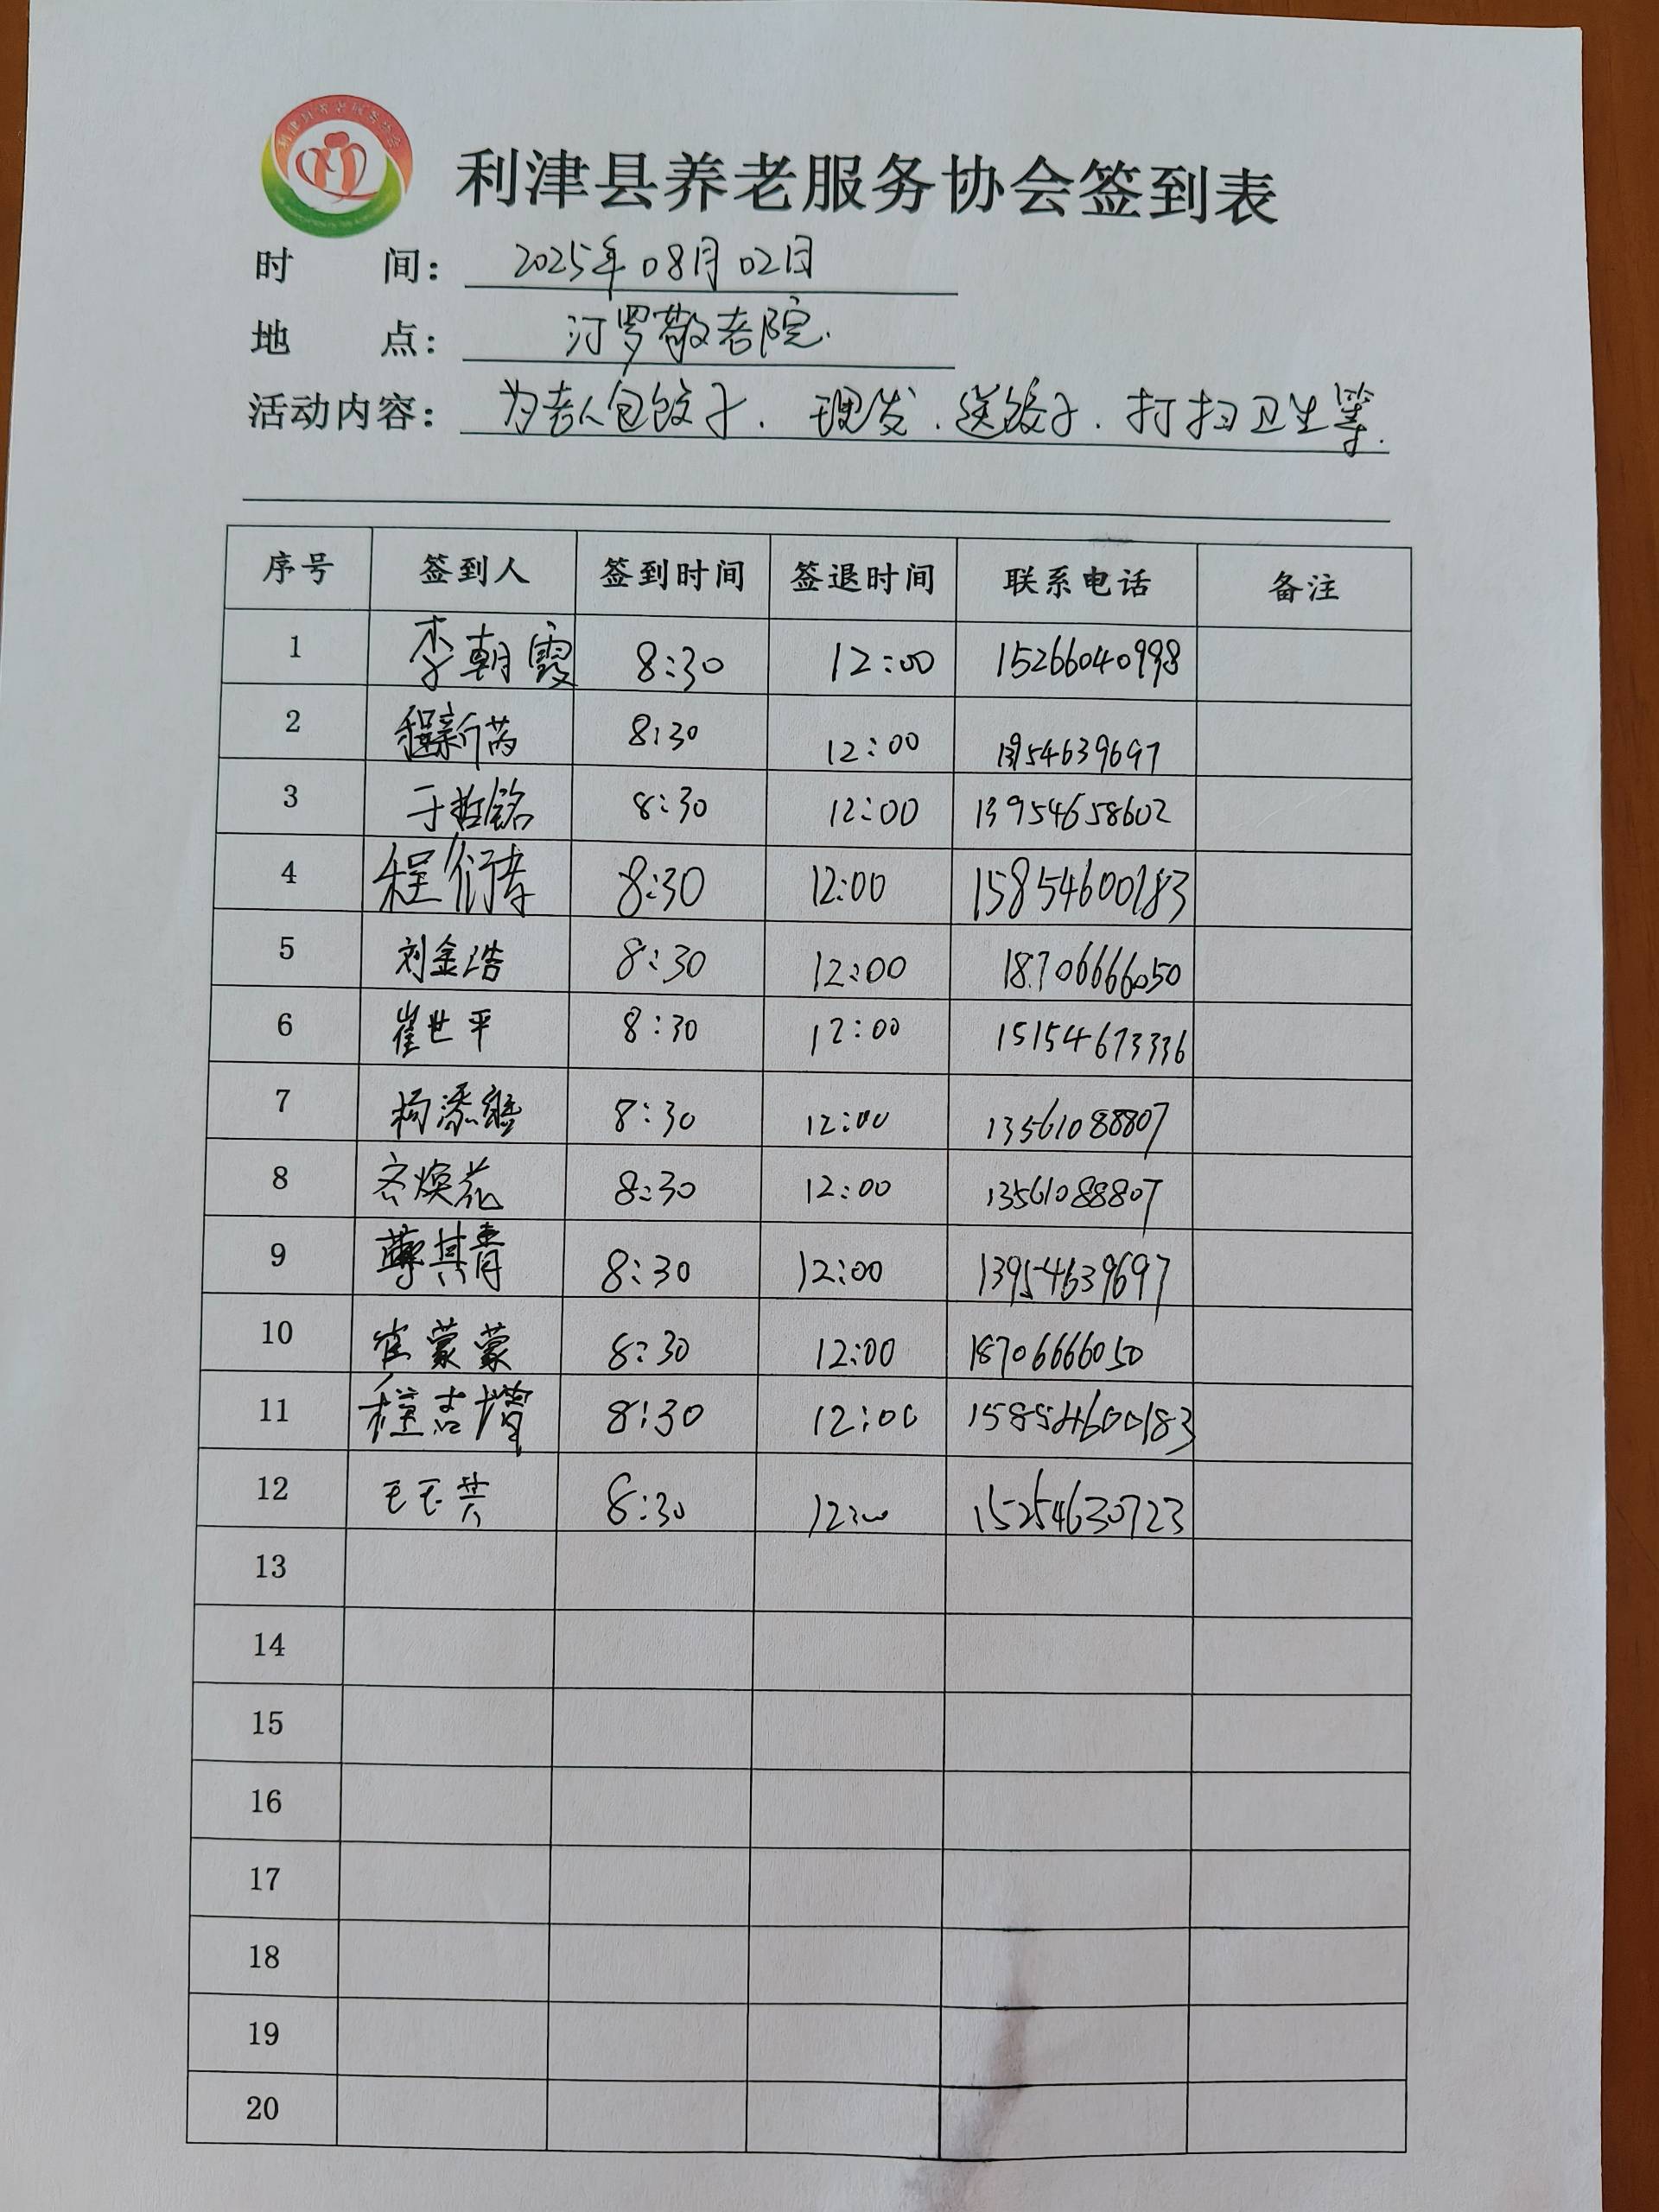 利津县养老服务协会
利津县养老服务协会签到表
时 间: 2025年08月02日
地 点: 汀罗敬老院.
活动内容: 为老人包饺子. 理发. 送饺子. 打扫卫生等.
序号 签到人 签到时间 签退时间 联系电话 备注
1 李朝霞 8:30 12:00 15266040998
2 程新芮 8:30 12:00 13954639697
3 于哲铭 8:30 12:00 13954658602
4 程衍孝 8:30 12:00 15854600183
5 刘金浩 8:30 12:00 18706666050
6 崔世平 8:30 12:00 15154673336
7 杨添 8:30 12:00 13561088807
8 齐焕花 8:30 12:00 13561088807
9 薄其青 8:30 12:00 13954639697
10 崔蒙蒙 8:30 12:00 18706666050
11 程吉增 8:30 12:00 15854600183
12 8:30 12:00 15254630723
13
14
15
16
17
18
19
20